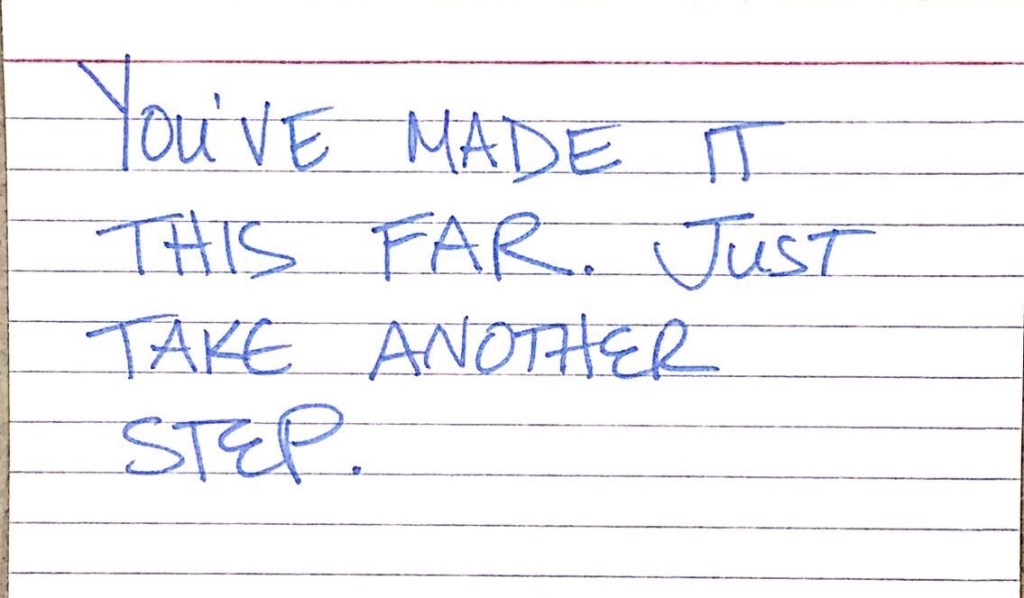 You've MADE IT
THIS FAR. JUST
TAKE ANOTHER
STEP.